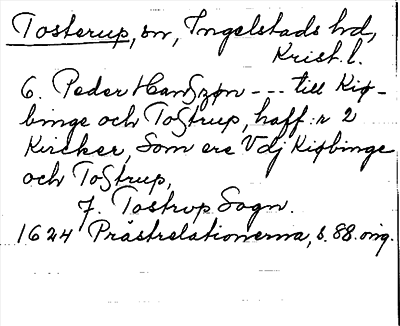 Tosterup, sn, Ingelstads hd,
Krist. l.
6. Peder Hanszøn --- till Kiø-
binge och Tostrup, haffr 2
Kircker, Som ere Vdj Kiøbinge
och Tostrup,
7. Tostrop Sogn.
1624 Prästrelationerna, s. 88. orig.